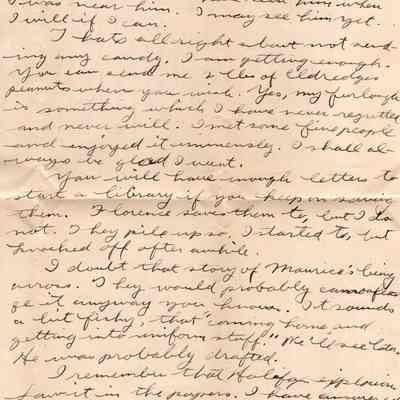 I was near him. I may see him yet.
I will if I can.
Thats all right about not send-
ing any candy. I am getting enough.
You can send me 2 lbs of Eldredges
peanuts when you wish. Yes, my furlough
is something which I have never regretted
and never will. I met some fine people
and enjoyed it immensely. I shall al-
ways be glad I went.
You will have enough letters to
start a library if you keep on saving
them. Florence saves them to, but I do
not. They pile up so. I started to, but
knocked off after awhile.
I doubt that story of Maurice's being
across. They would probably camouflag
ge it anyway you know. It sounds
a bit fishy, that "coming home and
getting into uniform stuff." We'll see later.
He was probably drafted.
I remember that Halifax explosion
Saw it in the papers. I have